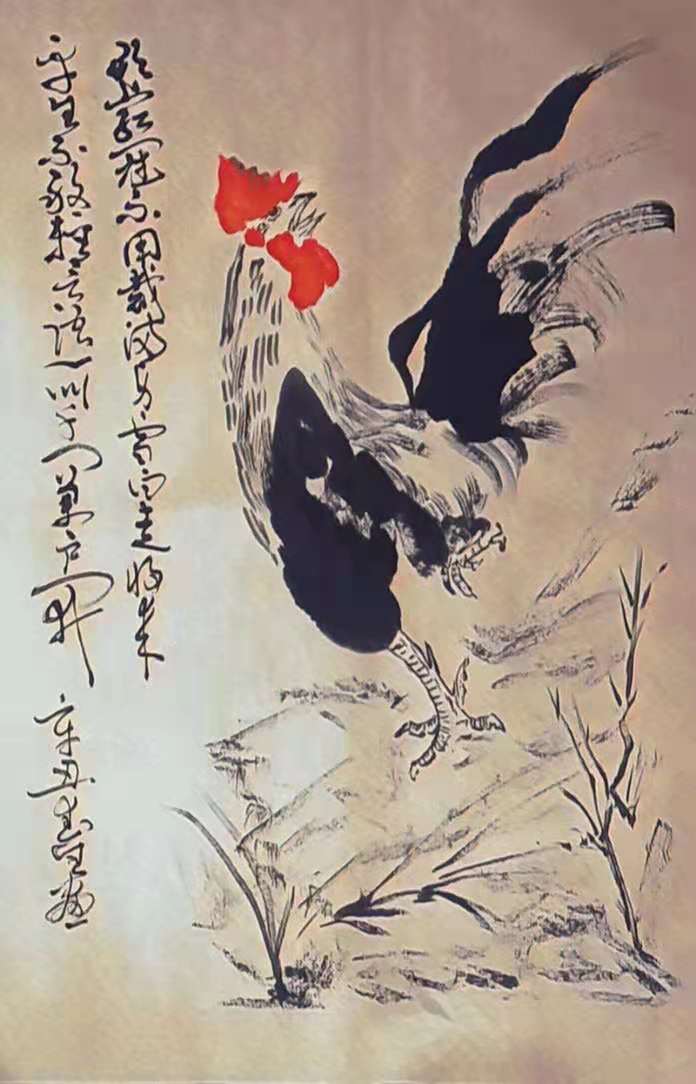 头上红冠不用裁满身雪白走将来
平生不敢轻言语一叫千门萬户开
辛丑